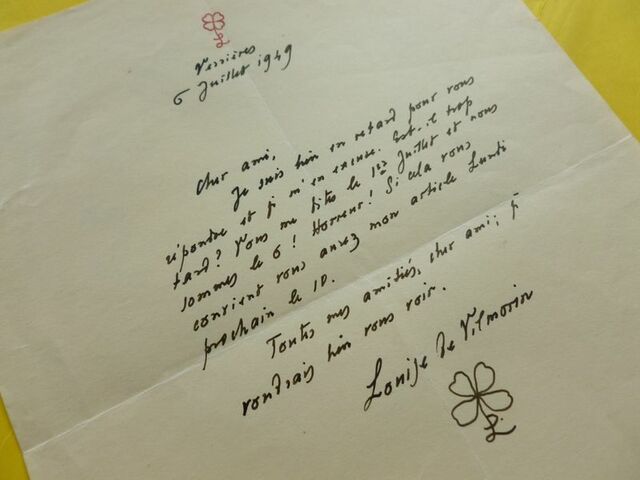 L
Verrières
6 Juillet 1949
Cher ami,
Je suis bien en retard pour vous
répondre et j'm'en excuse. Est-il trop
tard? Vous me dites le 1er Juillet et nous
sommes le 6! Horreur! Si cela vous
convient vous aurez mon article Lundi
prochain le 10.
Toutes mes amitiés, cher ami; j'
voudrais bien vous voir.
Louise de Vilmorin
L